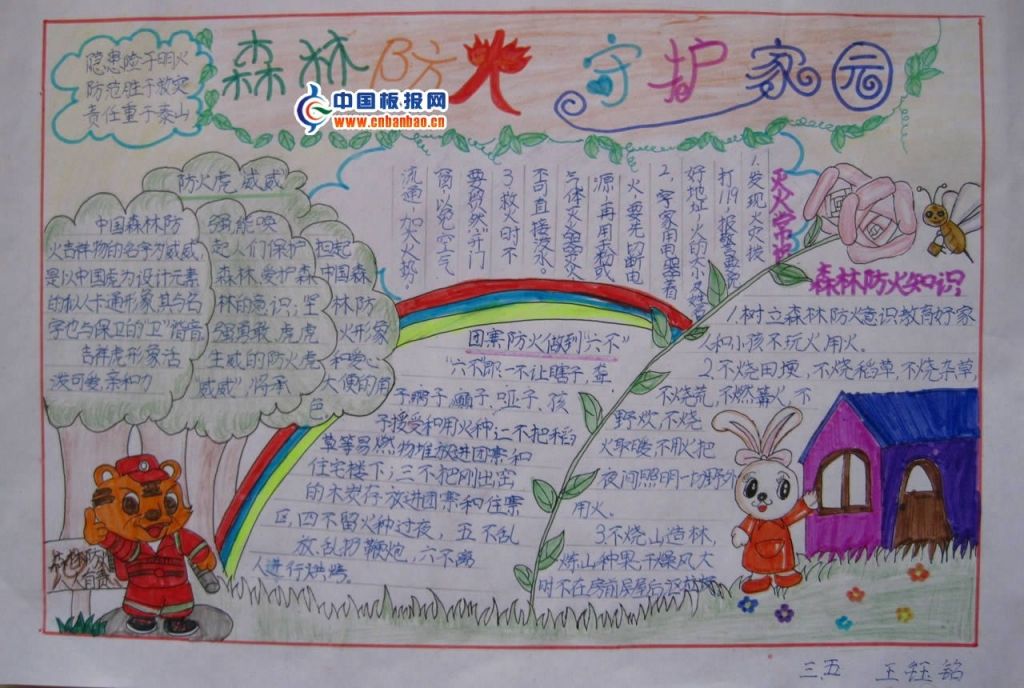 森林防火 守护家园
中国板报网
www.cnbanbao.cn
隐患险于明火
防范胜于救灾
责任重于泰山
防火虎 威威
中国森林防
火吉祥物的名字为威威,
是以中国虎为设计元素
的拟人卡通形象,其与名
字也与保卫的“卫”谐音,
吉祥虎形象活
泼可爱,亲和力
强,能唤
起人们保护
森林,爱护森
林的意识;坚
强勇敢、虎虎
生威的防火虎
威威”,将承
担起
中国森
林防
火形象
和爱心
大使的角
色
灭火常识
1.发现火灾,拨
打119报警,要说
好地址,火的大小及姓名
2,家用电器着
火,要先切断电
源,再用干粉或
气体灭火器灭火,
不可直接泼水。
3.救火时不
要贸然开门
窗,以免空气
流通,加大火势。
团寨防火做到“六不”
“六不”即:一不让瞎子,聋
子,痴子,哑子、孩
子接受和用火种;二不把稻
草等易燃物堆放进团寨和
住宅楼下;三不把刚出窑
的木炭存放进团寨和住寨
区,四不留火种过夜,五不乱
放、乱扔鞭炮,六不离
人进行烘烤。
森林防火知识
1.树立森林防火意识教育好家
人和小孩不玩火用火。
2.不烧田埂,不烧稻草,不烧杂草
不烧荒,不燃篝火,不
野炊,不烧
火取暖,不用火把
夜间照明一切野外
用火。
3.不烧山造林,
炼山种果,干燥风大
时不在房前屋后
三.五 王钰铭